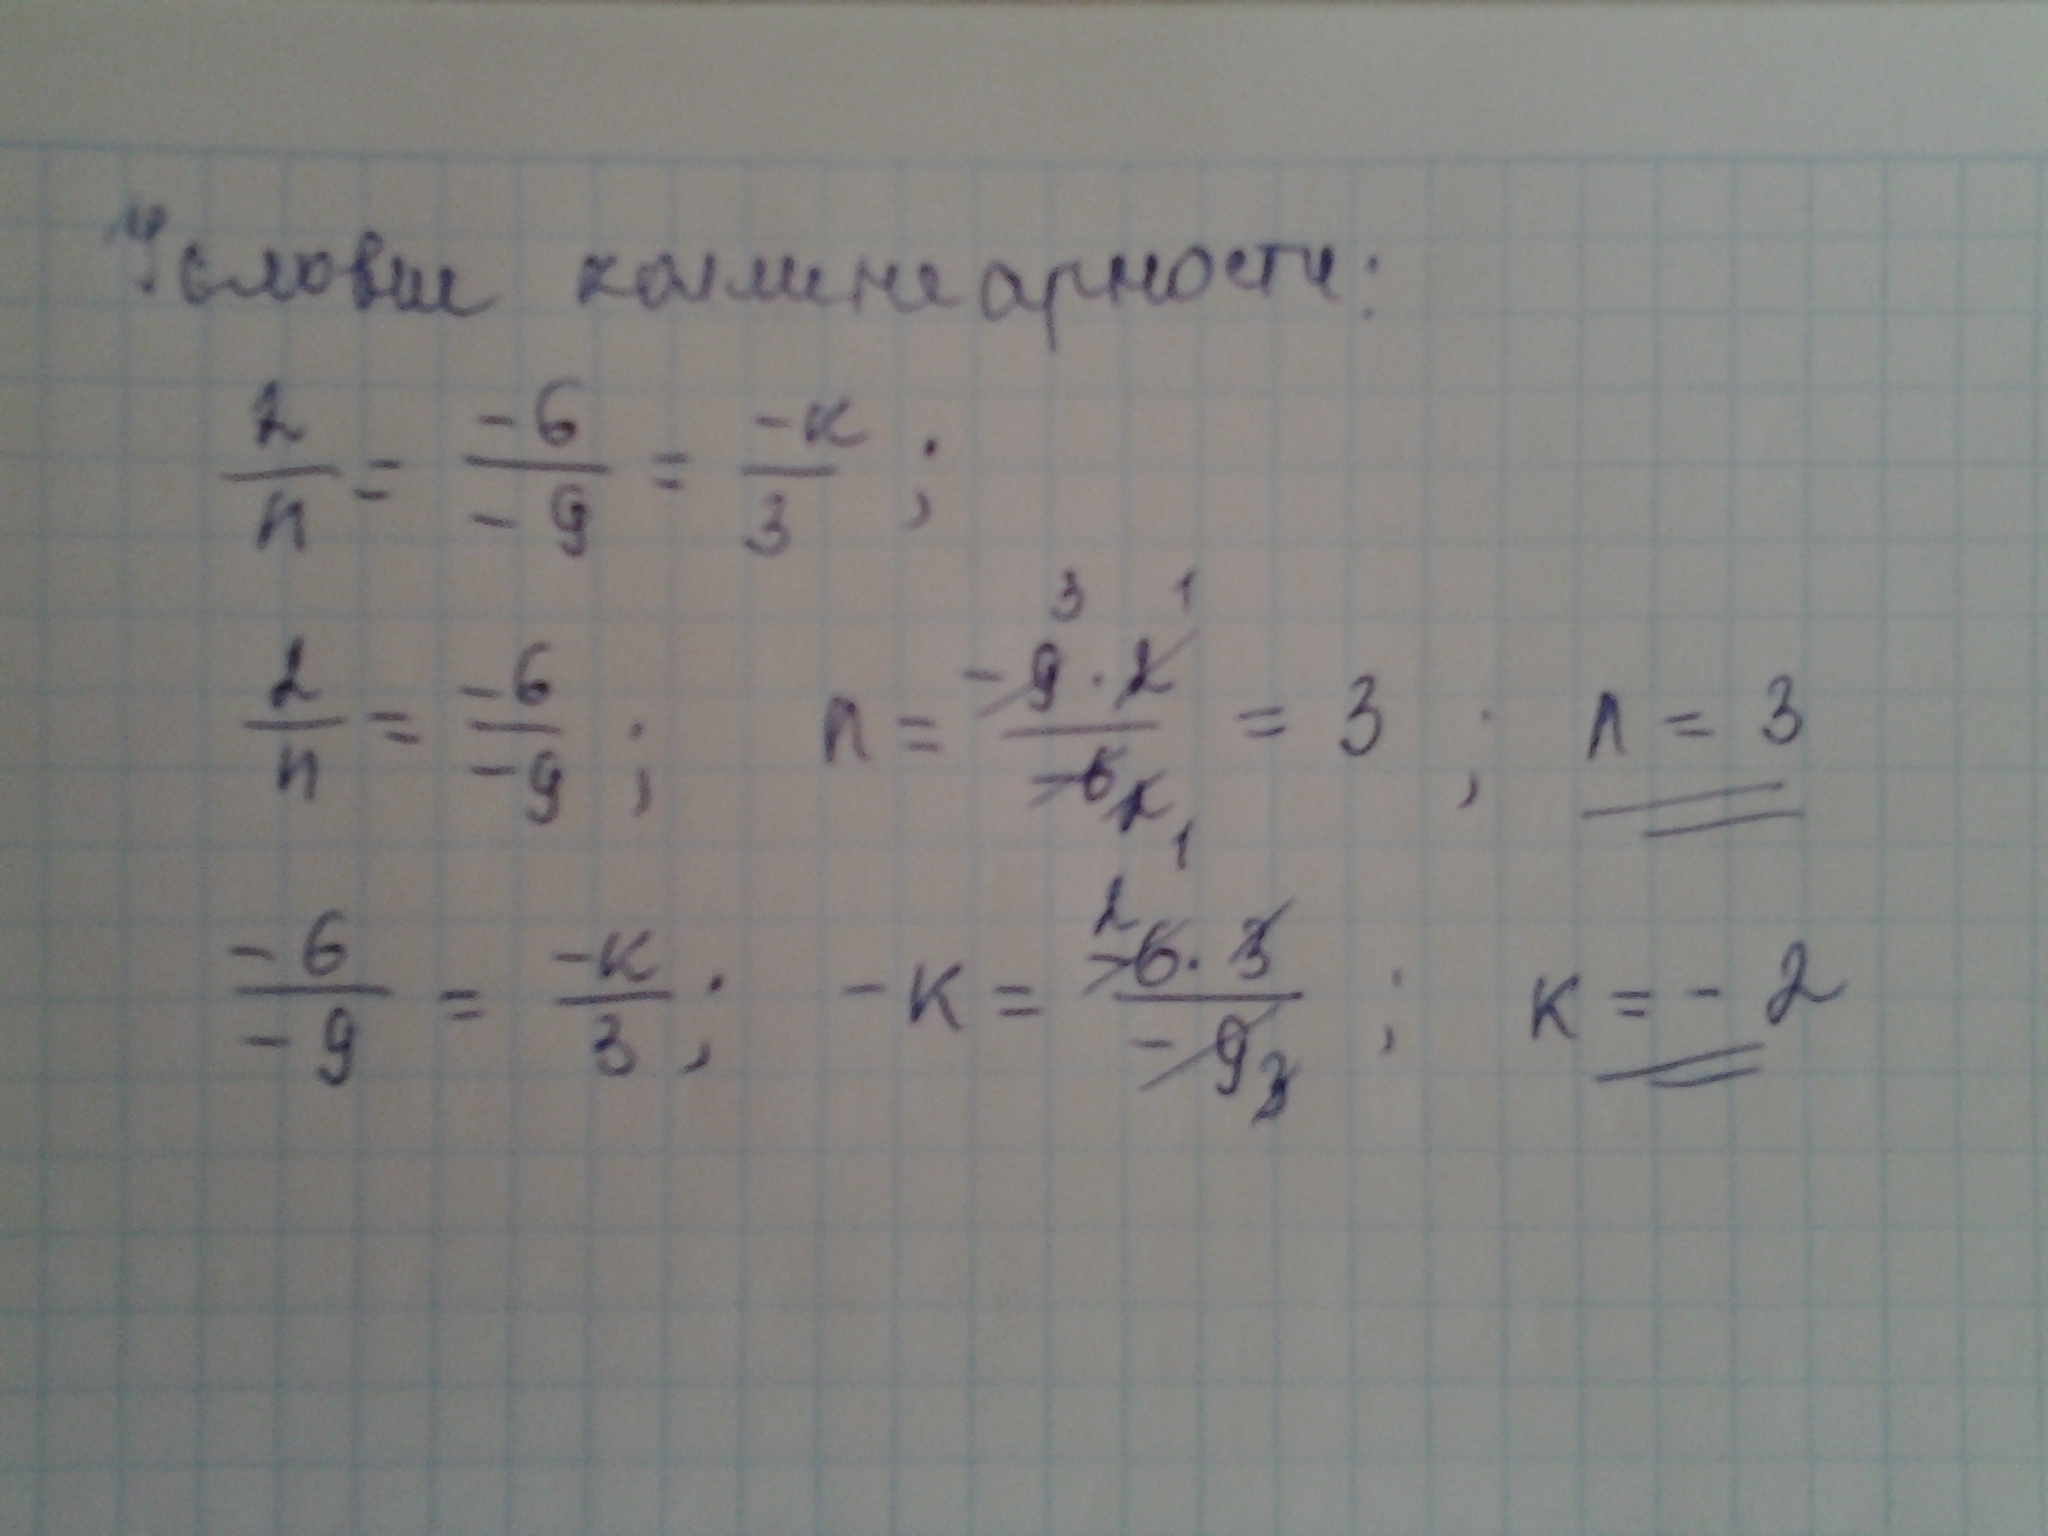 Условие коллинеарности:
2/n = -6/-9 = -к/3 ;
2/n = -6/-9 ; n = -9·2/-6 = 3 ; n = 3
-6/-9 = -к/3 ; -к = -6·3/-9 ; к = -2